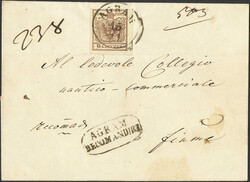 238
AGRAM
503
Al lodevole Collegio
nautico-commerciale
recomand
AGRAM
RECOMANDIRT
fiume